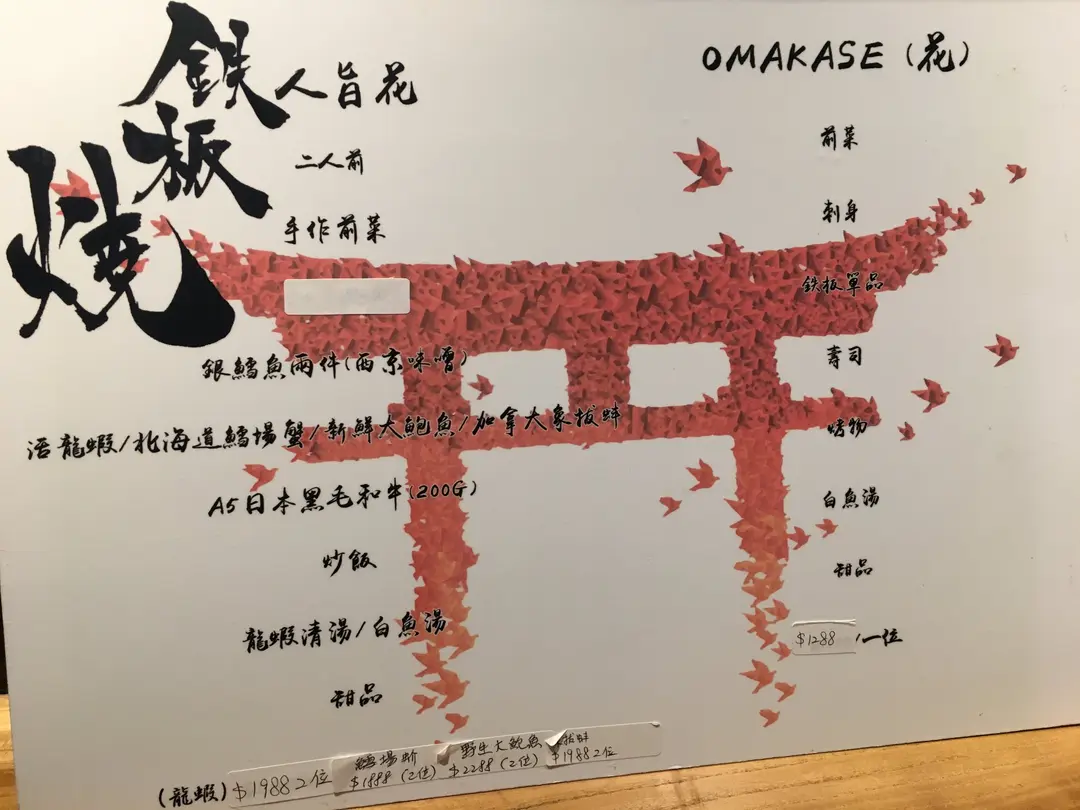 鉄板燒
人旨花
二人前
手作前菜
銀鱈魚兩件(西京味噌)
活龍蝦/北海道鱈場蟹/新鮮大鮑魚/加拿大象拔蚌
A5日本黑毛和牛(200G)
炒飯
龍蝦清湯/白魚湯
甜品
(龍蝦) $1988 2位
鱈場蚧 $1888 (2位)
野生大鮑魚 $2288 (2位)
拔蚌 $1988 2位
OMAKASE (花)
前菜
刺身
鉄板單品
壽司
烤物
白魚湯
甜品
$1288 /一位